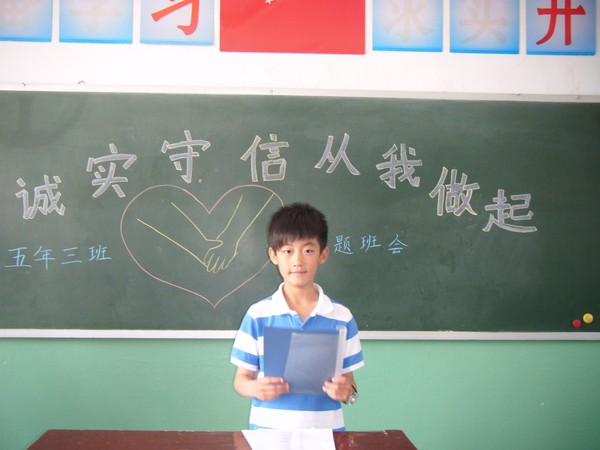 习 求实 开
诚实守信从我做起
五年三班 题班会